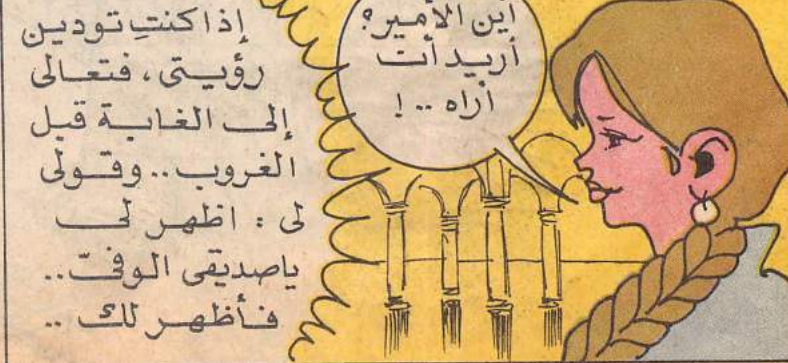 أين الأمير؟
أريد أن
أراه .. !
إذا كنتِ تودين
رؤيتى ، فتعالى
إلى الغابة قبل
الغروب .. وقولى
لى : اظهر لى
ياصديقى الوفىّ ..
فأظهر لك ..